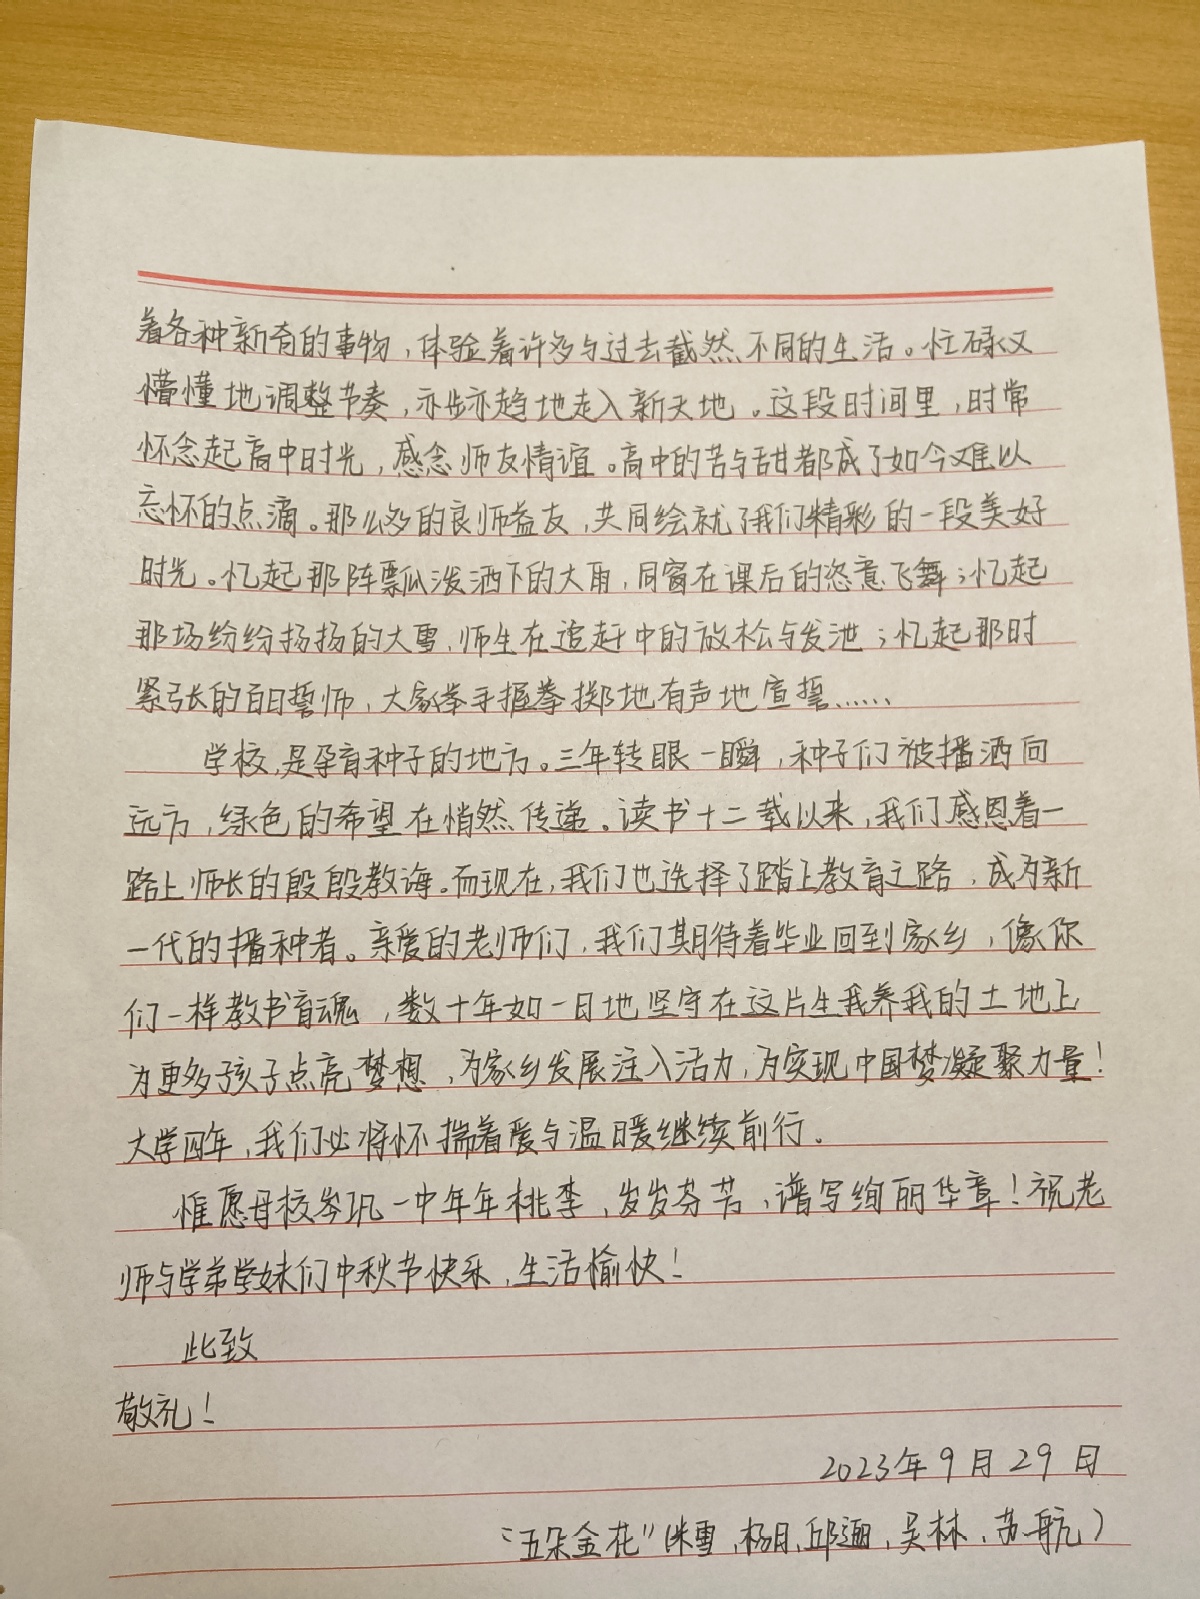 着各种新奇的事物，体验着许多与过去截然不同的生活。忙碌又
懵懂地调整节奏，亦步亦趋地走入新天地。这段时间里，时常
怀念起高中时光，感念师友情谊。高中的苦与甜都成了如今难以
忘怀的点滴。那么多的良师益友，共同绘就了我们精彩的一段美好
时光。忆起那阵瓢泼洒下的大雨，同窗在课后的恣意飞舞；忆起
那场纷纷扬扬的大雪，师生在追赶中的放松与发泄；忆起那时
紧张的百日誓师，大家举手握拳掷地有声地宣誓……
学校，是孕育种子的地方。三年转眼一瞬，种子们被播洒向
远方，绿色的希望在悄然传递。读书十二载以来，我们感恩着一
路上师长的殷殷教诲。而现在，我们也选择了踏上教育之路，成为新
一代的播种者。亲爱的老师们，我们期待着毕业回到家乡，像你
们一样教书育魂，数十年如一日地坚守在这片生我养我的土地上
为更多孩子点亮梦想，为家乡发展注入活力，为实现中国梦凝聚力量！
大学四年，我们必将怀揣着爱与温暖继续前行。
惟愿母校岑巩一中年年桃李，岁岁芬芳，谱写绚丽华章！祝老
师与学弟学妹们中秋节快乐，生活愉快！
此致
敬礼！
2023年9月29日
“五朵金花”（雪，杨月，邱，吴林，苏航）